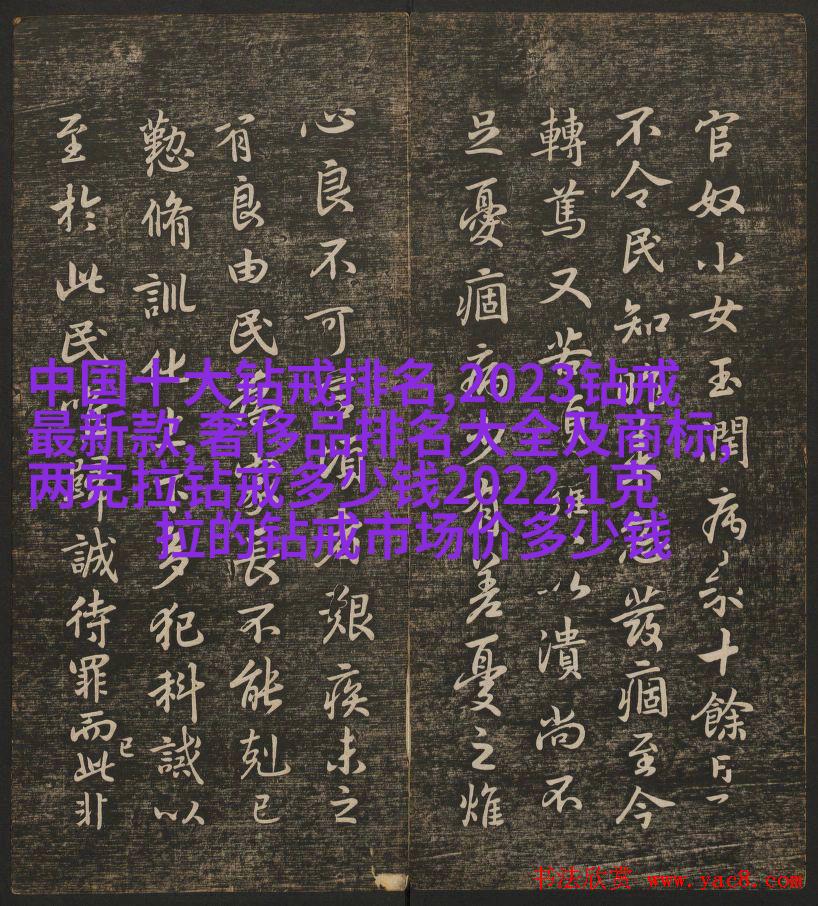 官奴小女玉潤病來十餘日了
不令民知昨來忽發痼至今
轉篤又苦頭癰以潰尚不
足憂痼病少有差憂之燋
心良不可言頃者艱疾未之
有良由民為家長不能剋己
懃脩訓化上下多犯科誡以
至於此民唯歸誠待罪而此非
已
中国十大钻戒排名,2023钻戒
最新款,奢侈品排名大全及商标,
两克拉钻戒多少钱2022,1克
拉的钻戒市场价多少钱
书法欣赏 www.yac8.com